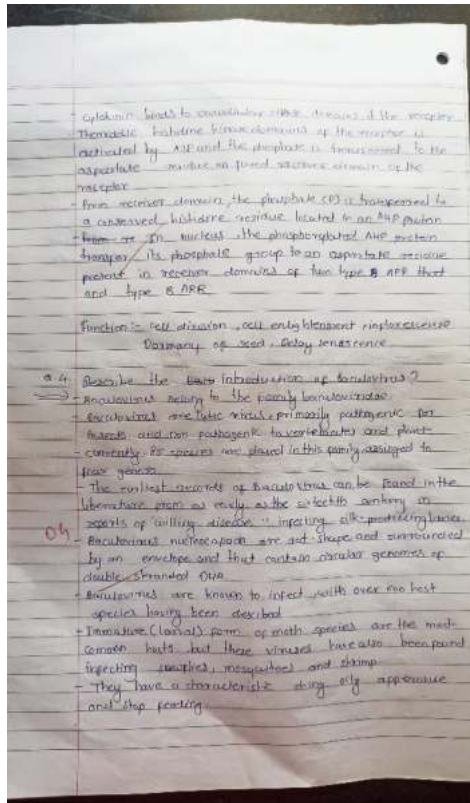 - Cytokinin binds to extracellular domains of the receptor
The histidine kinase domains of the receptor is
activated by and the phosphate is transferred to the
aspartate residue on fused receiver domain of the
receptor
- From receiver domain, the phosphate (P) is transferred to
a conserved histidine residue located in an AHP protein
- In nucleus, the phosphorylated AHP protein
transfer its phosphate group to an aspartate residue
present in receiver domains of two type ARR that
and type B ARR
Function :- cell division, cell enlightenment, inflorescence
Dormany of seed, Delay senascence
Q.4 Describe the introduction of baculovirus?
- Baculovirus belong to the family baculoviridae.
- Baculovirus are lytic virus, primarily pathogenic for
insects and non pathogenic to vertebrates and plant-
- currently 85 species are placed in this family assigned to
four genera
- The earliest records of Baculovirus can be found in the
literature from as early as the century in
reports of disease infecting silk-producing larvae
04
- Baculovirus nucleocapsid are rod shape and surrounded
by an envelope and that contain circular genomes of
double stranded DNA
- Baculovirus are known to infect, with over 600 host
species having been described
- Immature (larval) form of moth species are the most
common hosts but these viruses have also been found
infecting sawflies, mosquitoes and shrimp
- They have a characteristic oily apperance
and stop feeding.